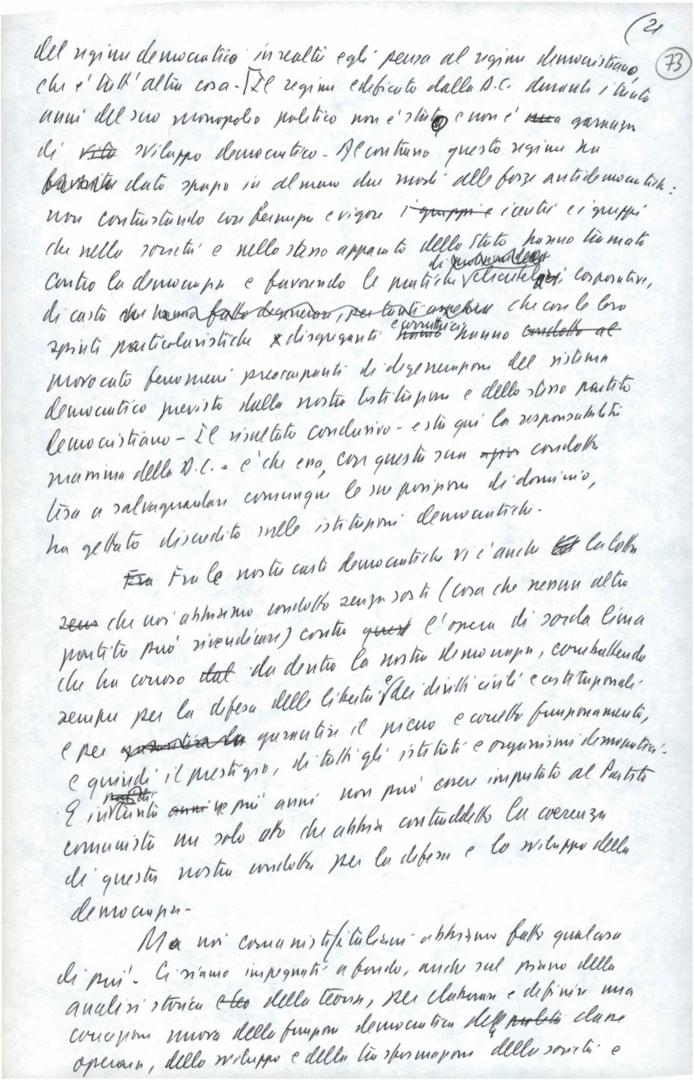 (21
73
del regime democratico in realtà egli pensa al regime democristiano,
che è tutt'altra cosa - Il regime edificato dalla D.C. durante i trenta
anni del suo monopolio politico non è stato e non è garanzia
di vita sviluppo democratico - Al contrario questo regime ha
favorito dato spazio in almeno due modi alle forze antidemocratiche:
non contrastando con fermezza e vigore i gruppi e i centri e i gruppi
che nella società e nello stesso apparato dello Stato hanno tramato
contro la democrazia e favorendo le pratiche di clientelari corporative,
di casta che hanno fatto degenerare, che con le loro
spinte particolaristiche disgreganti e corruttrici hanno condotto al
provocato fenomeni preoccupanti di degenerazione del sistema
democratico previsto dalla nostra Costituzione e dello stesso partito
democristiano - Il risultato conclusivo - e sta qui la responsabilità
massima della D.C. - è che essa, con questa sua condotta
tesa a salvaguardare comunque le sue posizioni di dominio,
ha gettato discredito sulle istituzioni democratiche.
Fra Fra le nostre carte democratiche vi è anche la lotta
senz che noi abbiamo condotto senza sosta (cosa che nessun altro
partito può rivendicare) contro quest l'opera di sorda lima
che ha corroso dal da dentro la nostra democrazia, combattendo
sempre per la difesa delle libertà e dei diritti civili e costituzionali
e per garantire la garantire il pieno e corretto funzionamento,
e quindi il prestigio, di tutti gli istituti e organismi democratici.
E in trenta anni e più anni non può essere imputato al Partito
comunista un solo atto che abbia contraddetto la coerenza
di questa nostra condotta per la difesa e lo sviluppo della
democrazia -
Ma noi comunisti italiani abbiamo fatto qualcosa
di più. Ci siamo impegnati a fondo, anche sul piano della
analisi storica e della teoria, per elaborare e definire una
concezione nuova della funzione democratica della classe
operaia, dello sviluppo e della trasformazione della società e